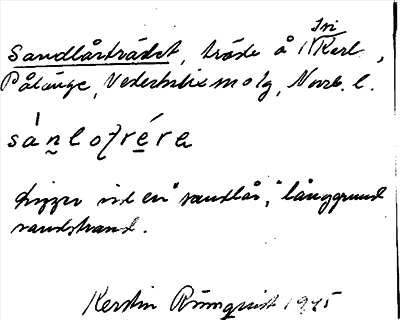 Sandlårträdet, träde å Tri Karl,
Pålänge, Nederkalix molg, Norrb. l.
sánlotréra
Ligger vid en "sandlår," långgrund
sandstrand.
Kerstin Rönnquist 1945